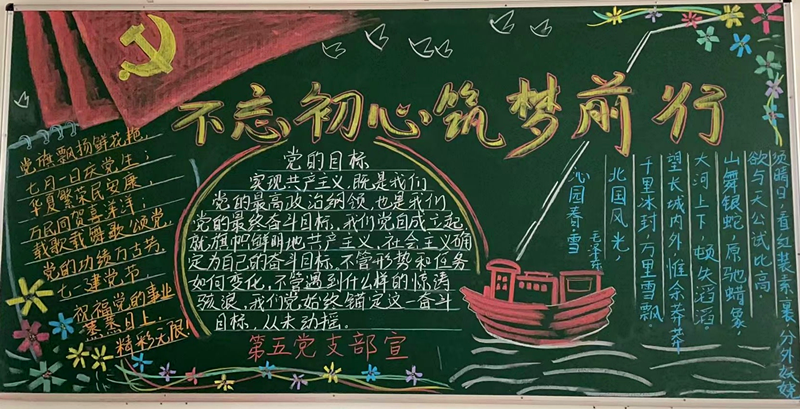 不忘初心筑梦前行
党旗飘扬鲜花艳,
七月一日庆党生;
华夏繁荣民安康,
万民同贺喜洋洋;
载歌载舞歌颂党,
党的功绩万古芳。
七一建党节,
祝福党的事业
蒸蒸日上,
精彩无限!
党的目标
实现共产主义,既是我们
党的最高政治纲领,也是我们
党的最终奋斗目标,我们党自成立起
就旗帜鲜明地共产主义、社会主义确
定为自己的奋斗目标,不管形势和任务
如何变化,不管遇到什么样的惊涛
骇浪,我们党始终锚定这一奋斗
目标,从未动摇。
第五党支部宣
心园春·雪
毛泽东
北国风光,
千里冰封,万里雪飘。
望长城内外,惟余莽莽
大河上下,顿失滔滔
山舞银蛇,原驰蜡象,
欲与天公试比高。
须晴日,看红装素裹,分外妖娆